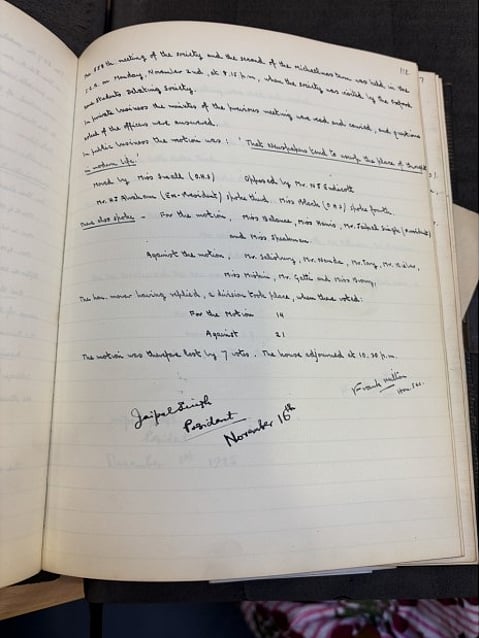 112
The 558th meeting of the society and the second of the Michaelmas term was held in the
J.C.R. on Monday, November 2nd, at 8.15 p.m, when the society was visited by the Oxford
Home Students Debating Society.
In private business the minutes of the previous meeting were read and carried, and questions
asked of the officers were answered.
In public business the motion was: 'That Newspapers tend to usurp the place of thought
in modern life.'
Moved by Miss (O.H.S) Opposed by Mr.
Mr. (Ex-President) spoke third. Miss (O.H.S) spoke fourth.
There also spoke - For the motion, Miss, Miss, Mr. Jaipal Singh (President)
and Miss Speakman
Against the motion, Mr. Salisbury, Mr. Nanda, Mr. Tony, Mr.
Miss, Mr. and Miss
The hon. mover having replied, a division took place, when there voted:
For the Motion 14
Against 21
The motion was therefore lost by 7 votes. The house adjourned at 10.30 p.m.
Frank
Hon. Sec.
Jaipal Singh
President
November 16th